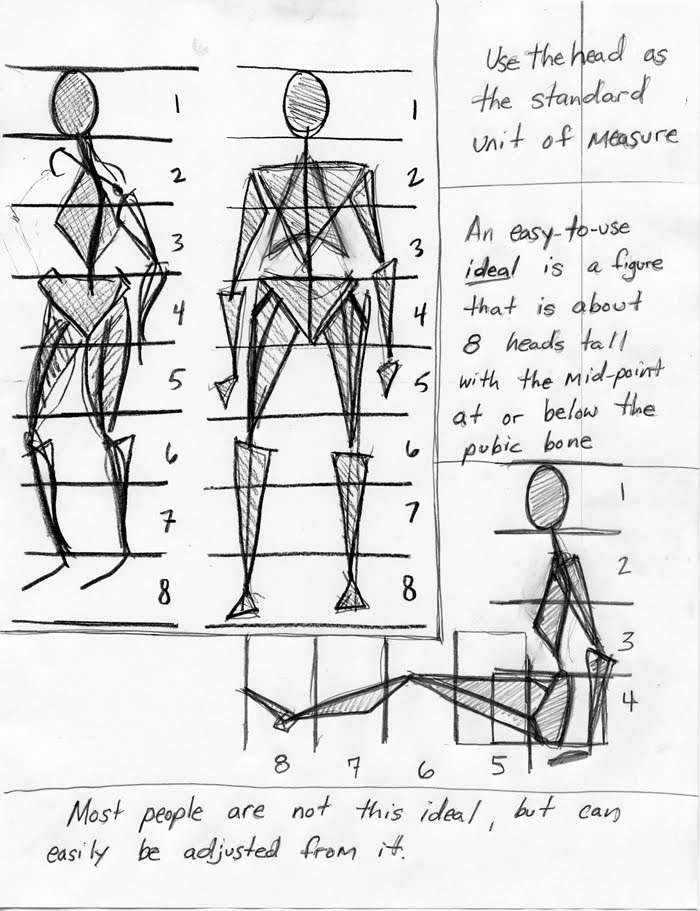 1
2
3
4
5
6
7
8
1
2
3
4
5
6
7
8
Use the head as
the standard
unit of measure
An easy-to-use
ideal is a figure
that is about
8 heads tall
with the mid-point
at or below the
pubic bone
1
2
3
4
8 7 6 5
Most people are not this ideal, but can
easily be adjusted from it.